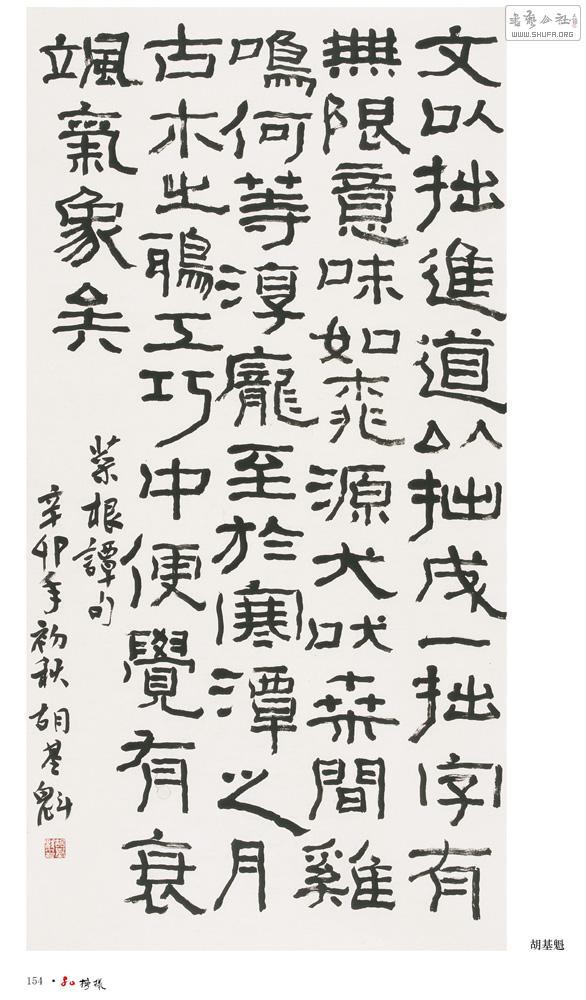 文以拙進道以拙成一拙字有
無限意味如桃源犬吠桑間雞
鳴何等淳龐至於寒潭之月
古木之鴉工巧中便覺有衰
颯氣象矣
菜根譚句
辛卯年初秋胡基魁
書藝公社
WWW.SHUFA.ORG
胡基魁
154 · 榜樣